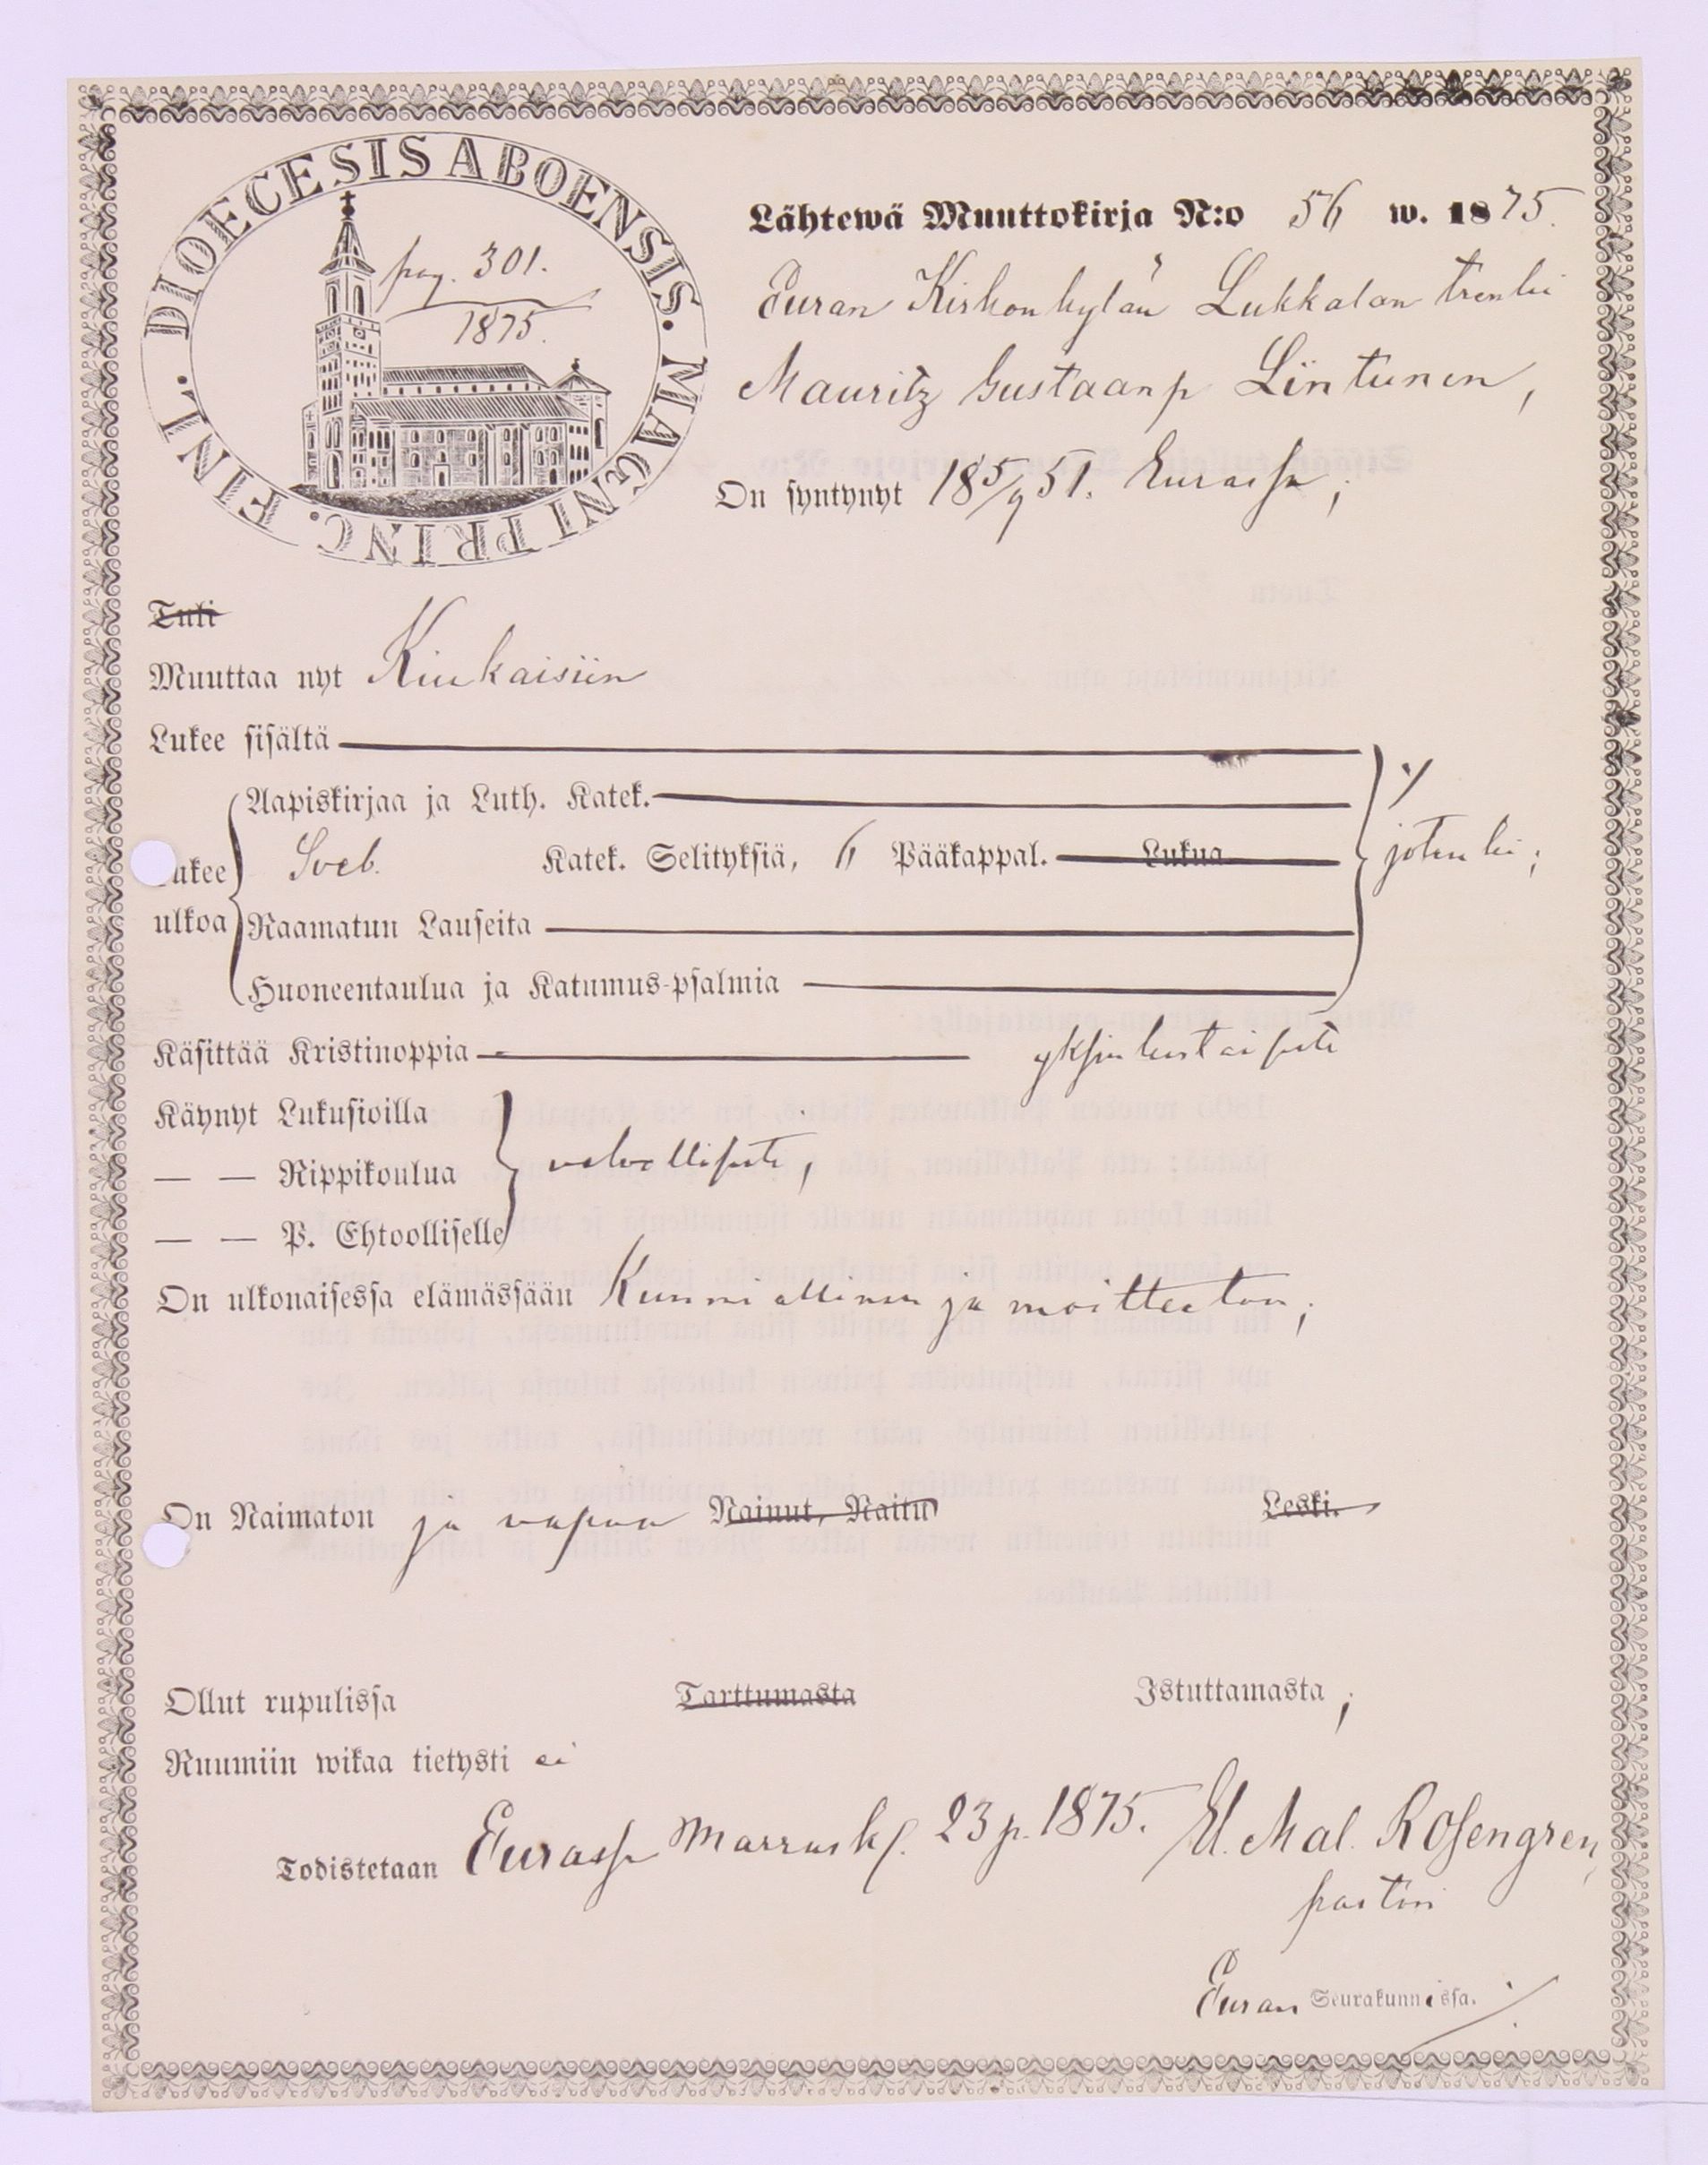 DIOECESIS ABOENSIS. MAGNI PRINC. FINL.
pag. 301.
1875.
Lähtewä Muuttokirja N:o 56 w. 1875.
Euran Kirkonkylän Lukkalan trenki
Mauritz Gustaanp Lintunen,
On syntynyt 18 5/9 51. Eurassa;
Tuli
Muuttaa nyt Kiukaisiin
Lukee sisältä
Aapiskirjaa ja Luth. Katek.
Lukee ulkoa
Sveb. Katek. Selityksiä, 6 Pääkappal. Lukua
jotenki;
Raamatun Lauseita
Huoneentaulua ja Katumus-psalmia
Käsittää Kristinoppia yksinkertaisesti
Käynyt Lukusioilla
— — Rippikoulua velvollisesti,
— — P. Ehtoolliselle
On ulkonaisessa elämässään Kunniallinen ja moitteeton;
On Naimaton ja vapaa Nainut, Naitu Leski.
Ollut rupulissa Tarttumasta Istuttamasta;
Ruumiin wikaa tietysti ei
Todistetaan Eurassa Marrask. 23 p. 1875. El. Mal. Rosengren,
pastori
Euran Seurakunnissa.